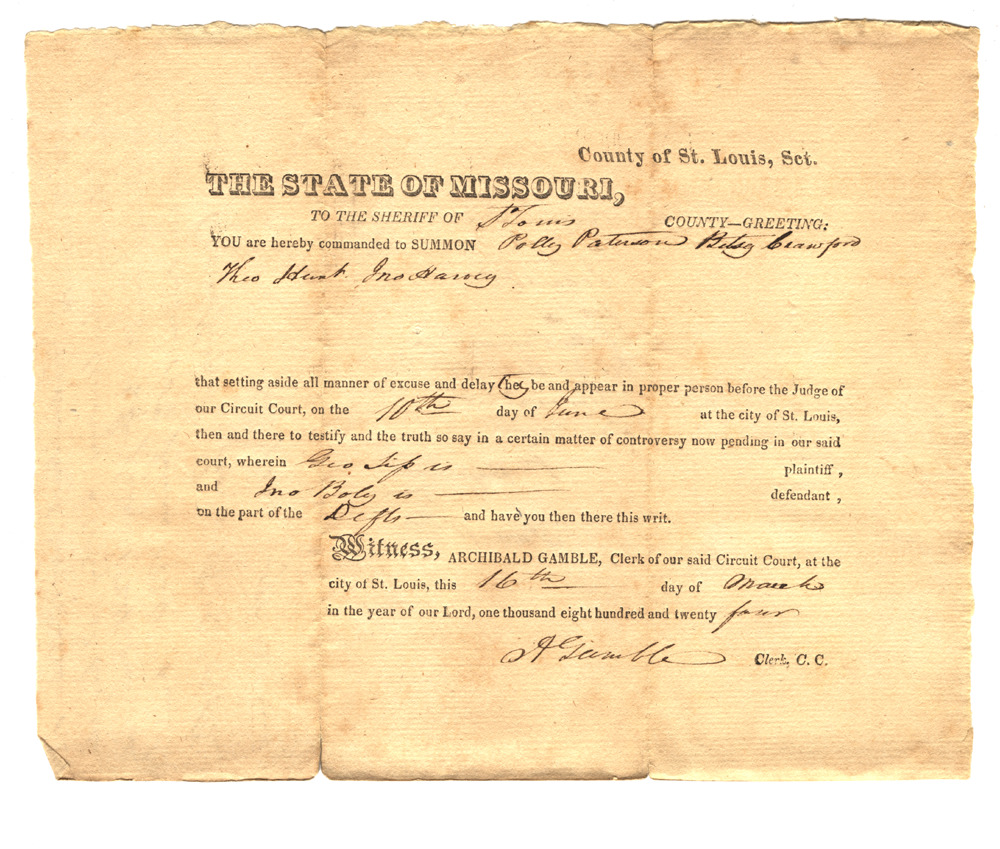 County of St. Louis, Sct.
THE STATE OF MISSOURI,
TO THE SHERIFF OF St Louis COUNTY—GREETING:
YOU are hereby commanded to SUMMON Polly Paterson Betsy Crawford
Theo Hunt Jno Harvey
that setting aside all manner of excuse and delay they be and appear in proper person before the Judge of
our Circuit Court, on the 10th day of June at the city of St. Louis,
then and there to testify and the truth so say in a certain matter of controversy now pending in our said
court, wherein Geo is plaintiff,
and Jno is defendant,
on the part of the Defts and have you then there this writ.
Witness, ARCHIBALD GAMBLE, Clerk of our said Circuit Court, at the
city of St. Louis, this 16th day of March
in the year of our Lord, one thousand eight hundred and twenty four
A Gamble Clerk, C. C.